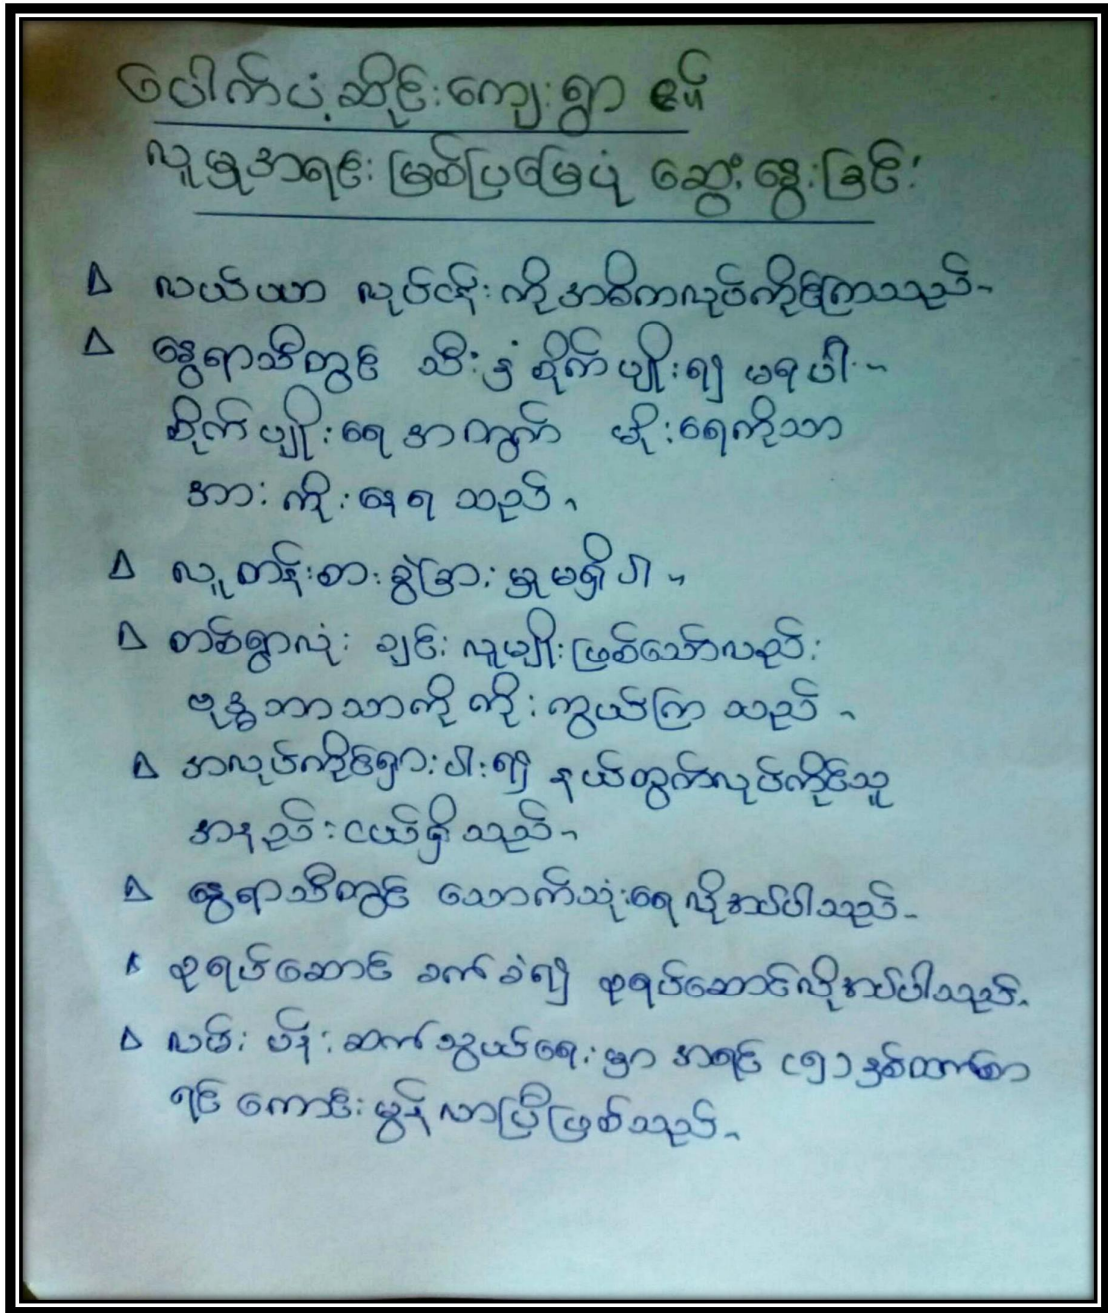 ပေါက်ပံ့ဆိုင်းကျေးရွာ ၏
လူမှုအရင်းမြစ်ပြမြေပုံ ဆွေးနွေးခြင်း
Δ လယ်ယာ လုပ်ငန်းကိုအဓိကလုပ်ကိုင်ကြသည်။
Δ နွေရာသီတွင် သီးနှံ စိုက်ပျိုး၍ မရပါ။
စိုက်ပျိုးရေအတွက် မိုးရေကိုသာ
အားကိုးနေရ သည်။
Δ လူတန်းစားခွဲခြားမှုမရှိပါ။
Δ တစ်ရွာလုံး ချင်းလူမျိုးဖြစ်သော်လည်း
ဗုဒ္ဓဘာသာကို ကိုးကွယ်ကြ သည်။
Δ အလုပ်ကိုင်ရှားပါး၍ နယ်ထွက်လုပ်ကိုင်သူ
အနည်းငယ်ရှိသည်။
Δ နွေရာသီတွင် သောက်သုံးရေလိုအပ်ပါသည်။
Δ စုရပ်ဆောင် ခက်ခဲ၍ စုရပ်ဆောင်လိုအပ်ပါသည်။
Δ လမ်းပန်းဆက်သွယ်ရေးမှာ အရင် (၅) နှစ်ထက်စာ
ရင် ကောင်းမွန်လာပြီဖြစ်သည်။